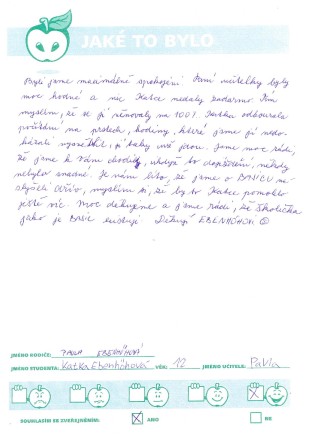 JAKÉ TO BYLO
Byli jsme maximálně spokojení. Paní učitelky byly
moc hodné a nic Katce nedaly zadarmo. Tím
myslím, že se jí věnovaly na 100%. Katka odbourala
počítání na prstech, hodiny, které jsme jí nedo-
kázali vysvětlit, jí taky už jdou. Jsme moc rádi,
že jsme k Vám chodily, i když to dojíždění, někdy
nebylo snadné. Je nám líto, že jsme o BASICU ne-
slyšeli dříve, myslím si, že by to Katce pomohlo
ještě víc. Moc děkujeme a jsme rádi, že školička
jako je Basic existuje. Děkují EBENHÖHOVI
JMÉNO RODIČE: PAVLA EBENHÖHOVÁ
JMÉNO STUDENTA: Katka Ebenhöhová VĚK: 12 JMÉNO UČITELE: Pavla
SOUHLASÍM SE ZVEŘEJNĚNÍM: X ANO NE